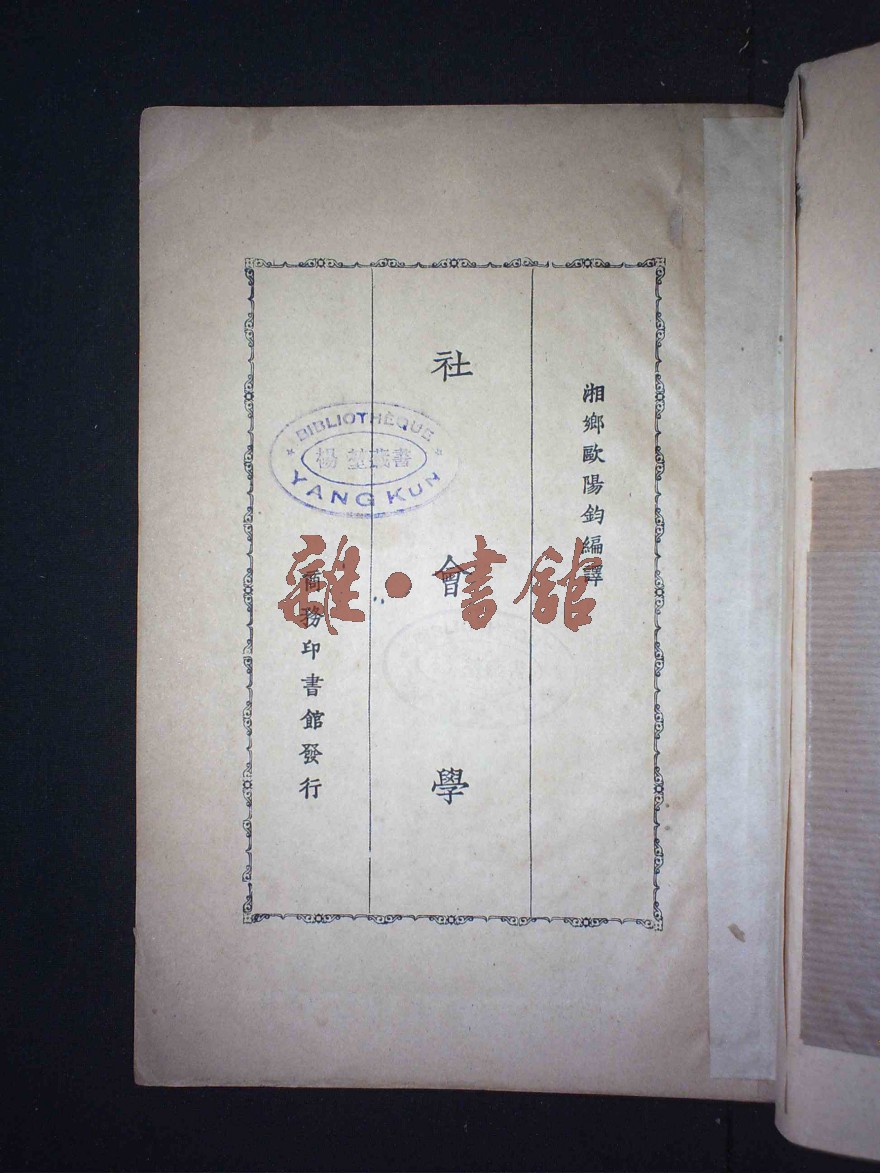 湘鄉歐陽鈞編譯
社會學
商務印書館發行
BIBLIOTHÈQUE
楊堃藏書
YANG KUN
雜·書館